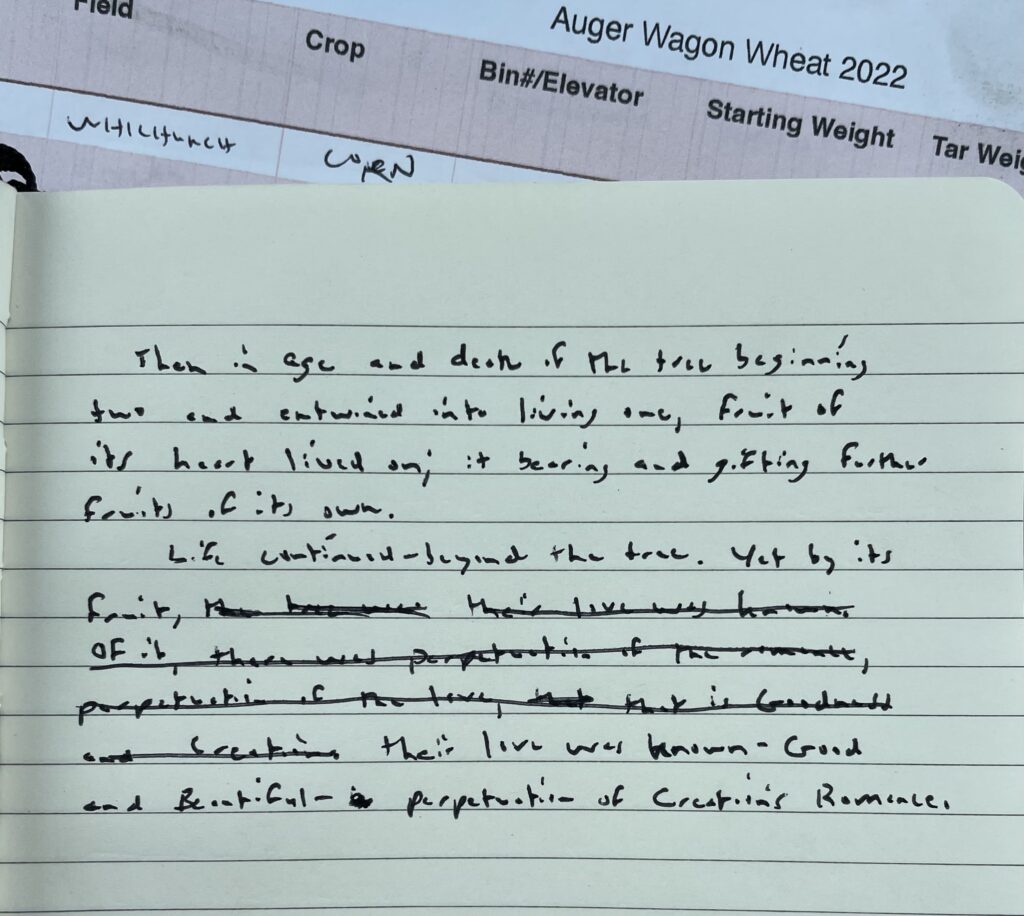 Auger Wagon Wheat 2022
Field Crop Bin#/Elevator Starting Weight Tar Weig
CORN
Then in age and death of the tree beginning
two and entwined into living one, fruit of
its heart lived on; it bearing and gifting further
fruits of its own.
Life continued-beyond the tree. Yet by its
fruit, the tree was their love was known.
Of it, there was perpetuation of the romance,
perpetuation of the love, that that is Goodness
and Creation. their love was known - Good
and Beautiful - perpetuation of Creation's Romance.